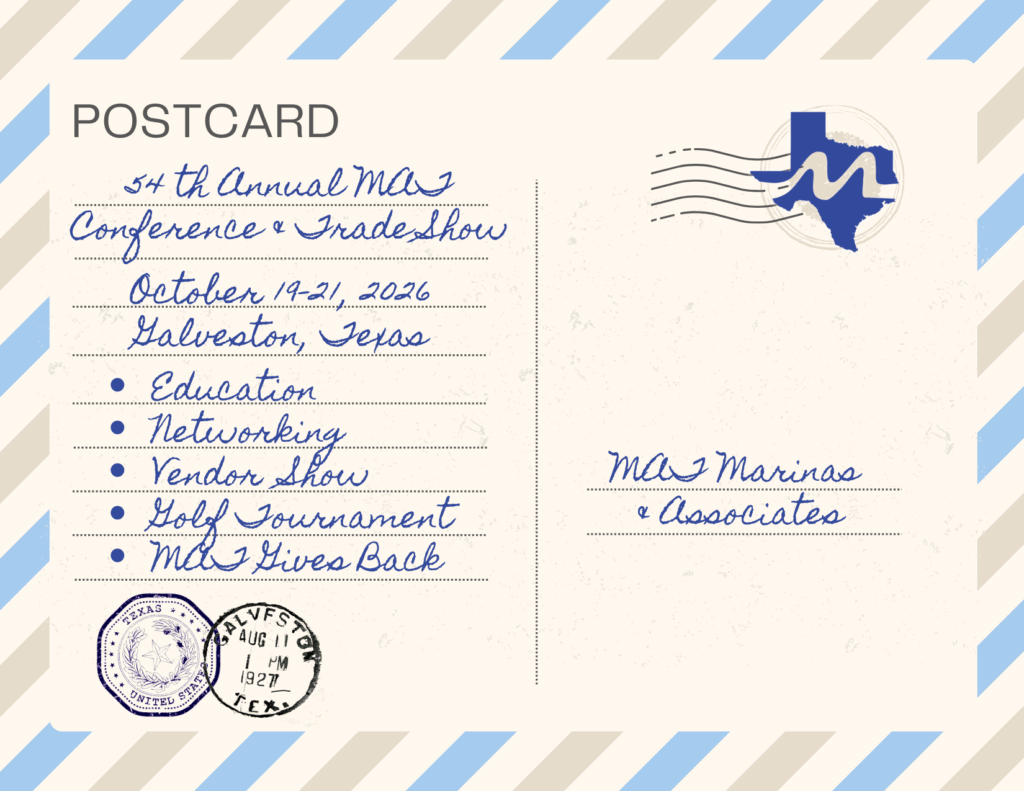 POSTCARD
54th Annual MAT
Conference & Trade Show
October 19-21, 2026
Galveston, Texas
• Education
• Networking
• Vendor Show
• Golf Tournament
• MAT Gives Back
MAT Marinas
& Associates
TEXAS
UNITED STATES
GALVESTON
AUG 11
1 PM
1927
TEX.
M